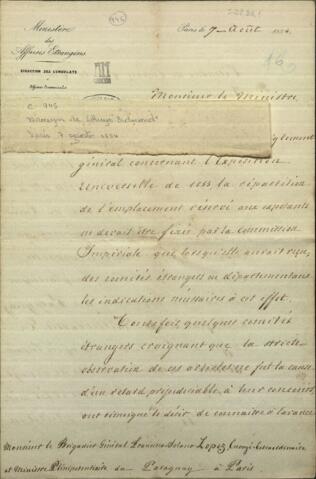 Ministère
des
Affaires Etrangères
DIRECTION DES CONSULATS
Affaires Commerciales
945
Paris le 7 Août 1854
Monsieur le Ministre
C. 945
Paris 7 agosto 1854
général concernant l'Exposition
Universelle de 1855, la répartition
de l'emplacement réservé aux exposants
ne devait être fixée par la Commission
Impériale que lorsqu'elle aurait reçu,
des comités étrangers ou départementaux
les indications nécessaires à cet effet.
Toutefois, quelques comités
étrangers craignant que la stricte
observation de ces articles ne fut la cause
d'un retard préjudiciable à leur concours,
ont témoigné le désir de connaître à l'avance
Monsieur le Brigadier Général Francisco Solano Lopez, Envoyé Extraordinaire
et Ministre Plénipotentiaire du Paraguay à Paris